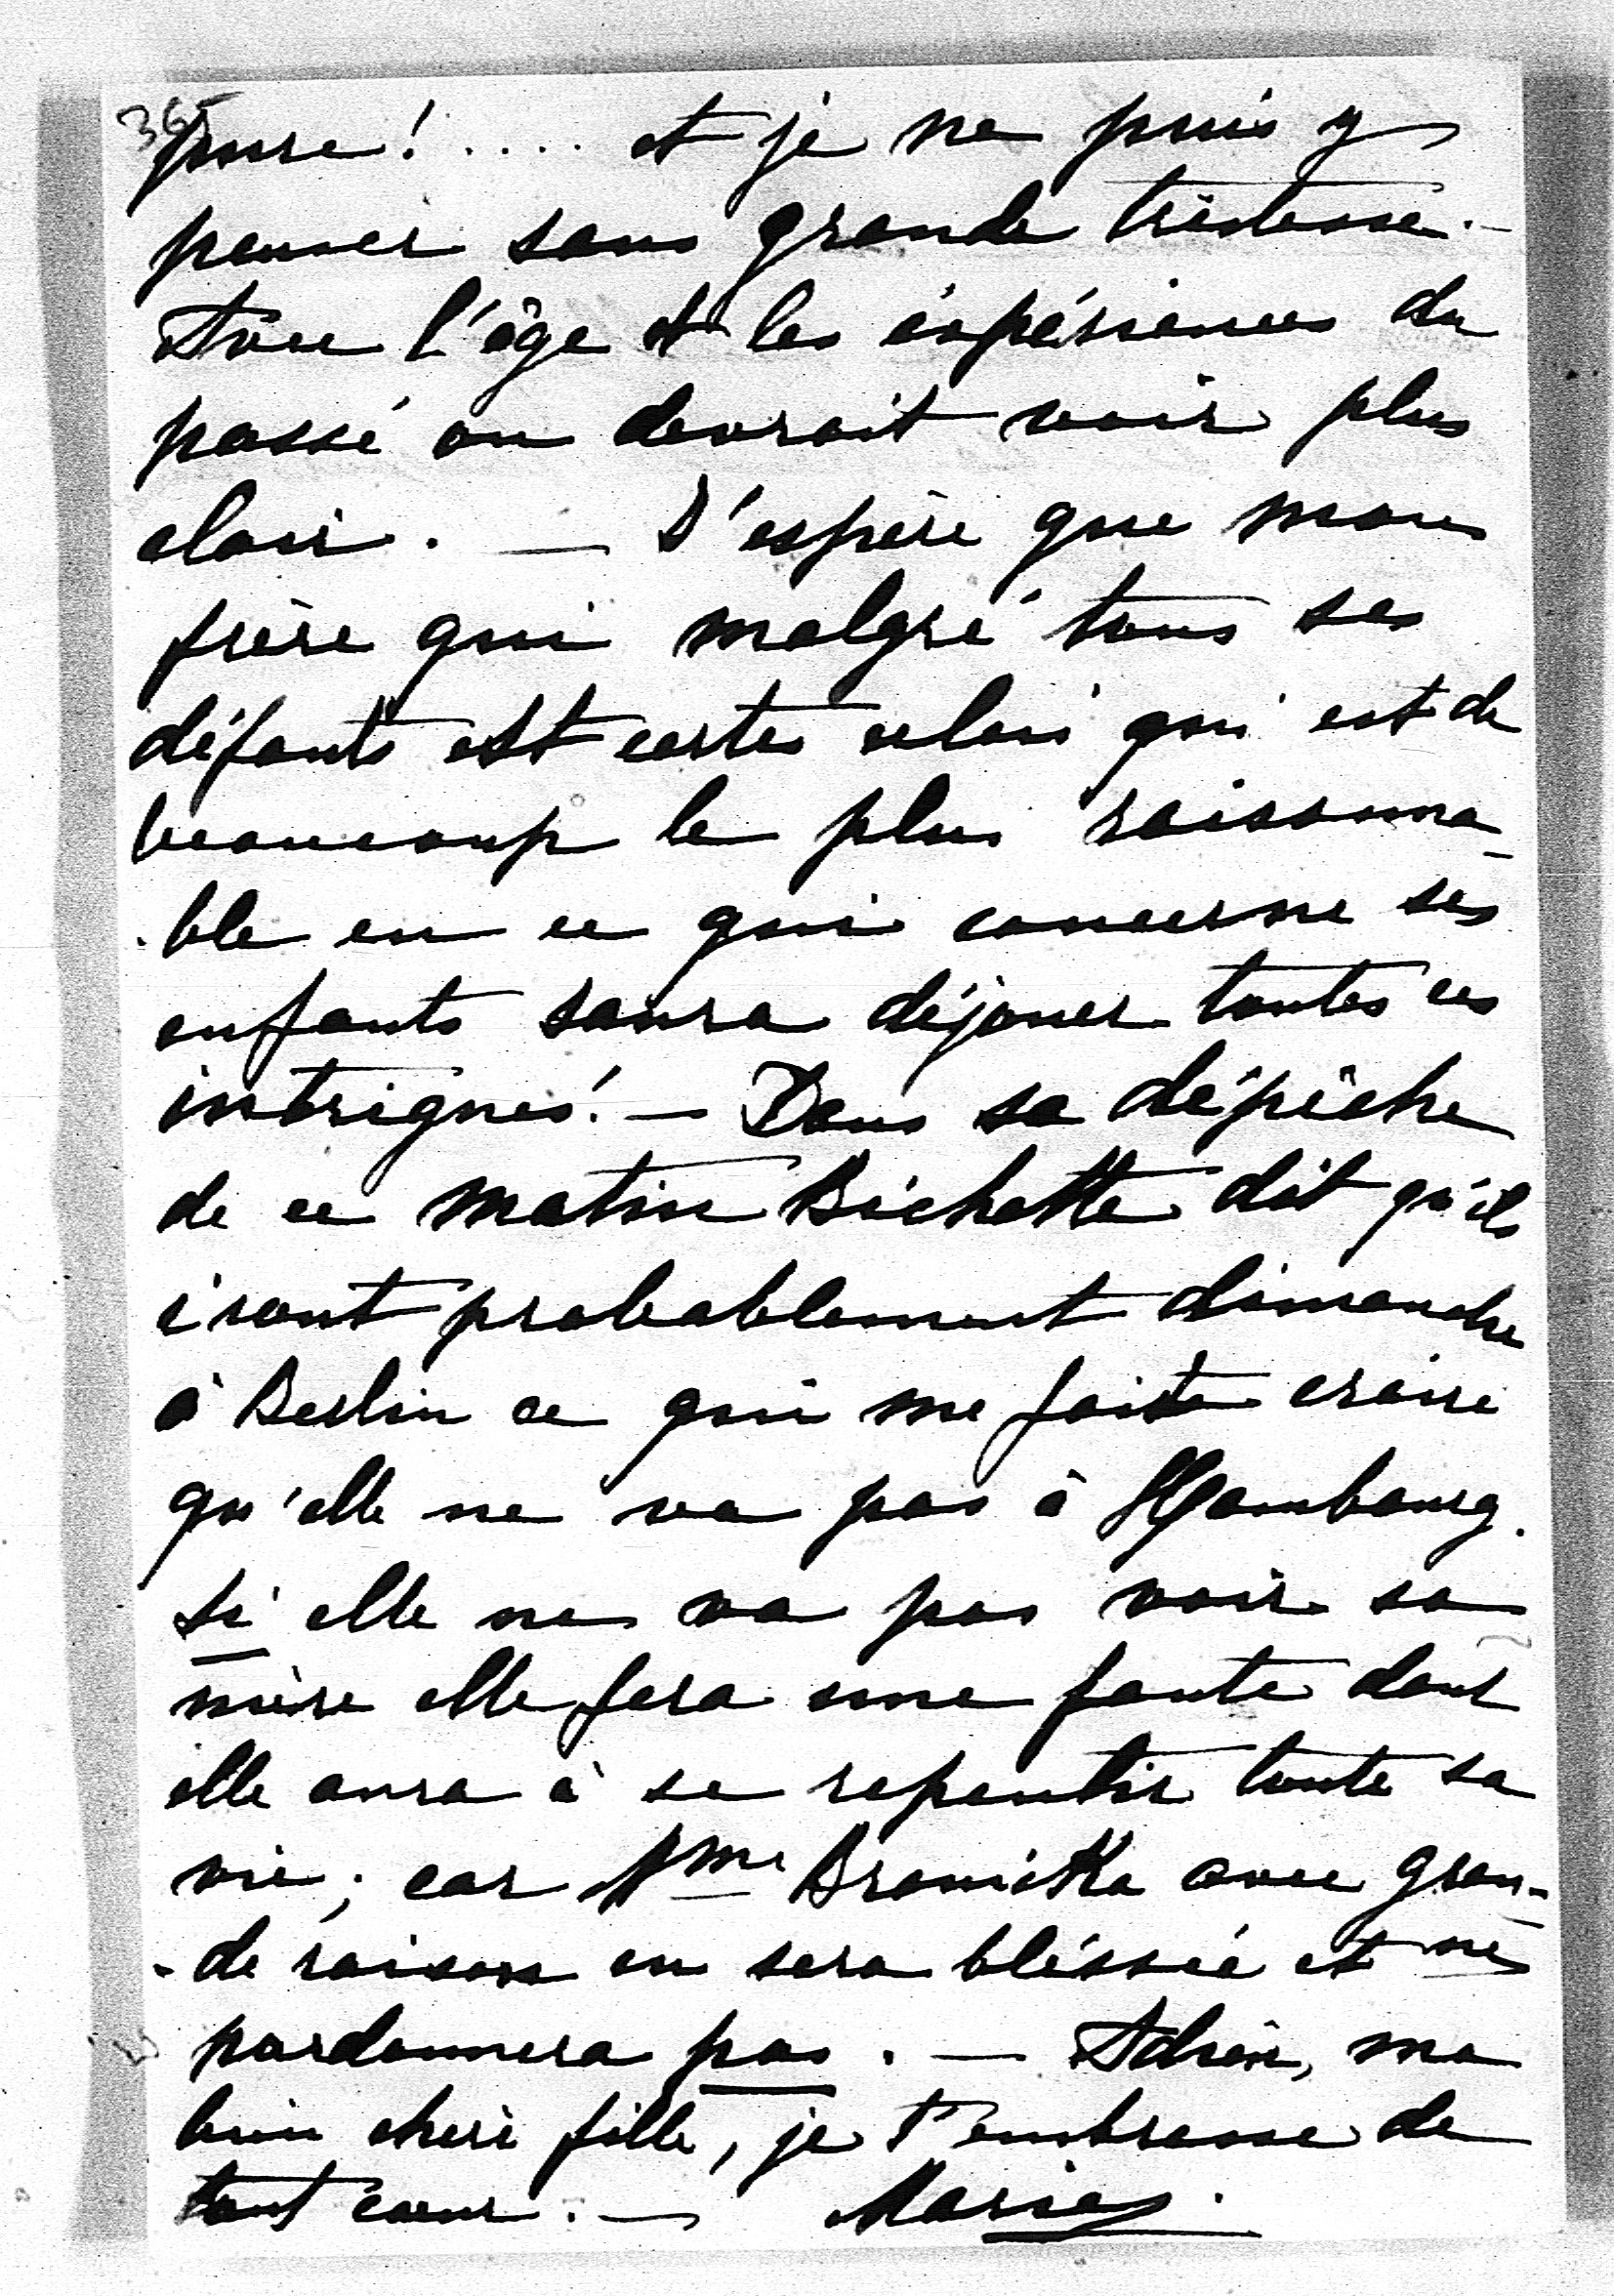 365
pure!.... et je ne puis y
penser sans grande tristesse. –
Avec l'âge et les expériences du
passé on devrait voir plus
clair. — J'espère que mon
frère qui malgré tous ses
défauts est certes celui qui est de
beaucoup le plus raisonna-
-ble en ce qui concerne ses
enfants saura déjouer toutes ces
intrigues! — Dans sa dépêche
de ce matin Bichette dit qu'ils
iront probablement dimanche
à Berlin ce qui me fait croire
qu'elle ne va pas à Hambourg.
Si elle ne va pas voir sa
mère elle fera une faute dont
elle aura à se repentir toute sa
vie; car Mme Branicka avec gran-
-de raison en sera bléssée et ne
pardonnera pas. — Adieu, ma
bien cheré fille, je t'embrasse de
tout cœur. — Marie.